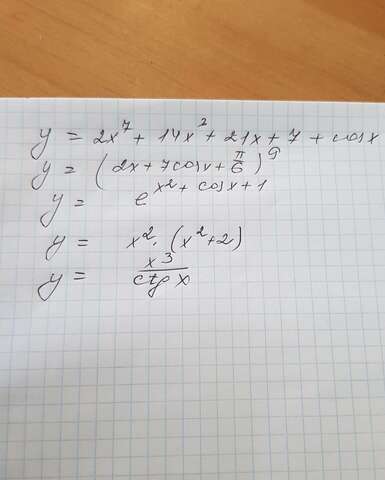 y = 2x⁷ + 14x² + 21x + 7 + cosx
y = (2x + 7cosx + π/6)⁹
y = e^(x² + cosx + 1)
y = x² · (x² + 2)
y = x³/ctgx